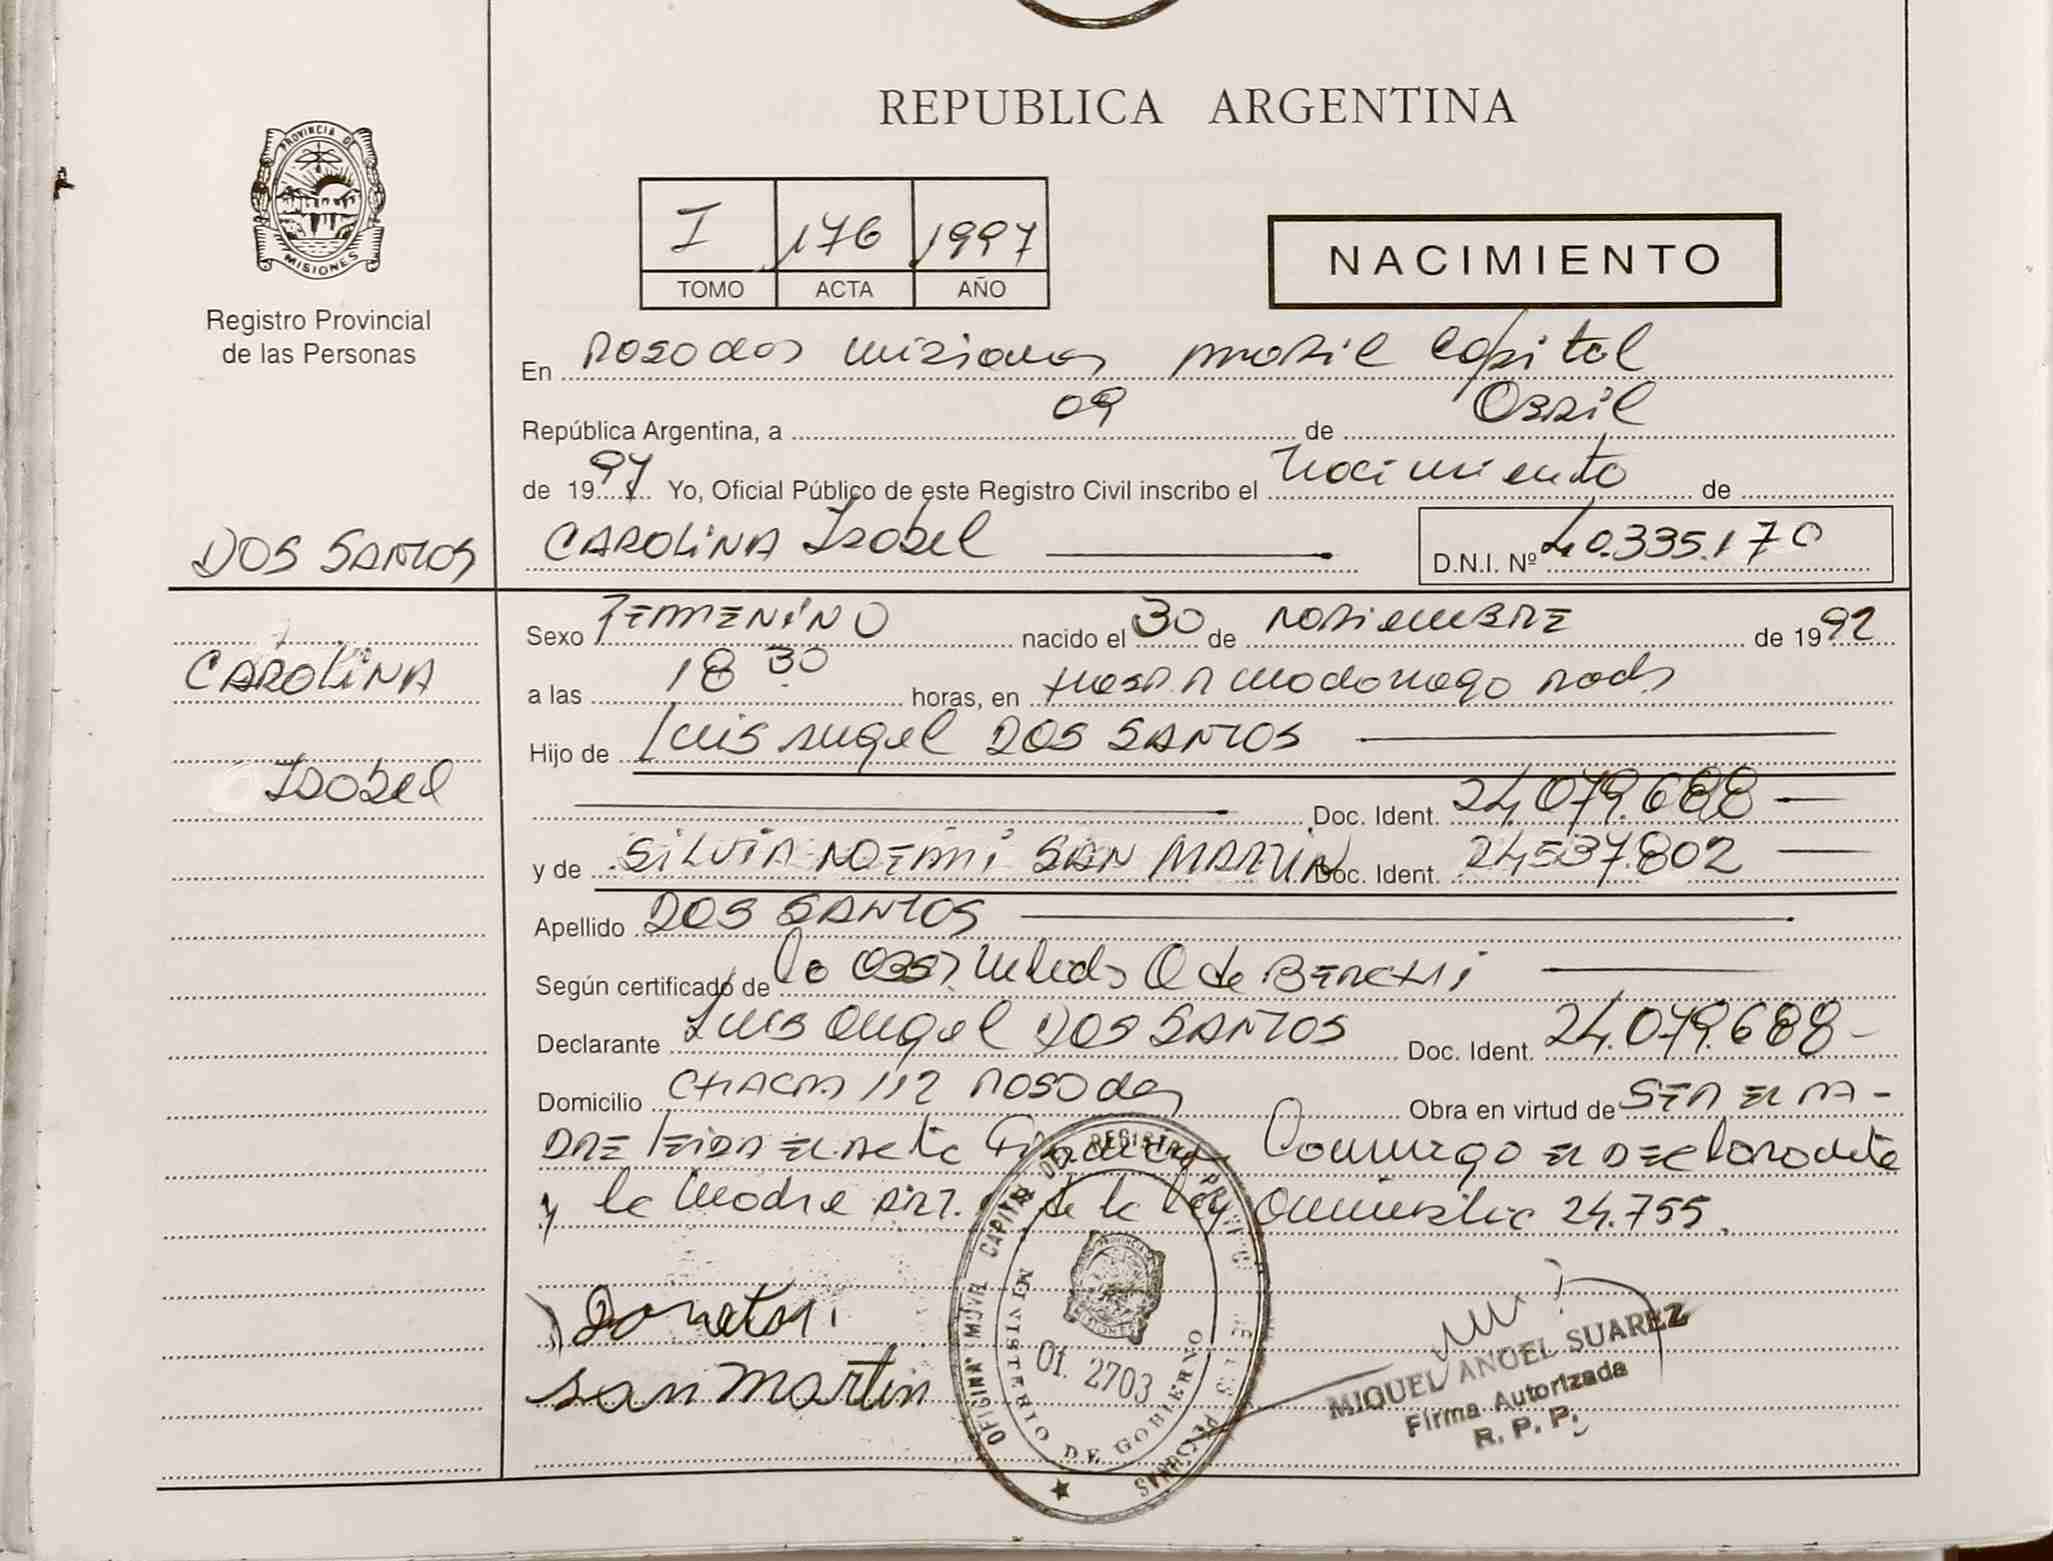 REPUBLICA ARGENTINA
PROVINCIA DE MISIONES
Registro Provincial
de las Personas
I 176 1997
TOMO ACTA AÑO
NACIMIENTO
En Posadas Misiones Movil Capital
República Argentina, a 09 de Abril
de 1997 Yo, Oficial Público de este Registro Civil inscribo el Nacimiento de
DOS SANTOS
CAROLINA Isabel D.N.I. Nº 40.335.170
CAROLINA
Isabel
Sexo FEMENINO nacido el 30 de NOViEMBRE de 1992
a las 18 30 horas, en Hosp. R Madariaga Pods
Hijo de Luis Angel DOS SANTOS
Doc. Ident. 24.079.688
y de SiLViA NOEMi SAN MARTIN Doc. Ident. 24.537.802
Apellido DOS SANTOS
Según certificado de la Obst. Q de
Declarante Luis Angel DOS SANTOS Doc. Ident. 24.079.688
Domicilio CHACRA 112 Posadas Obra en virtud de SER EL PA-
DRE LEIDA EL Acta Conmigo El DEClarante
y la Madre ART. de la ley Amnistia 24.755.
San Martin
OFICINA MOVIL CAPITAL DEL REGISTRO PROVINCIAL DE LAS PERSONAS
MINISTERIO DE GOBIERNO
01. 2703
MIGUEL ANGEL SUAREZ
Firma Autorizada
R. P. P.